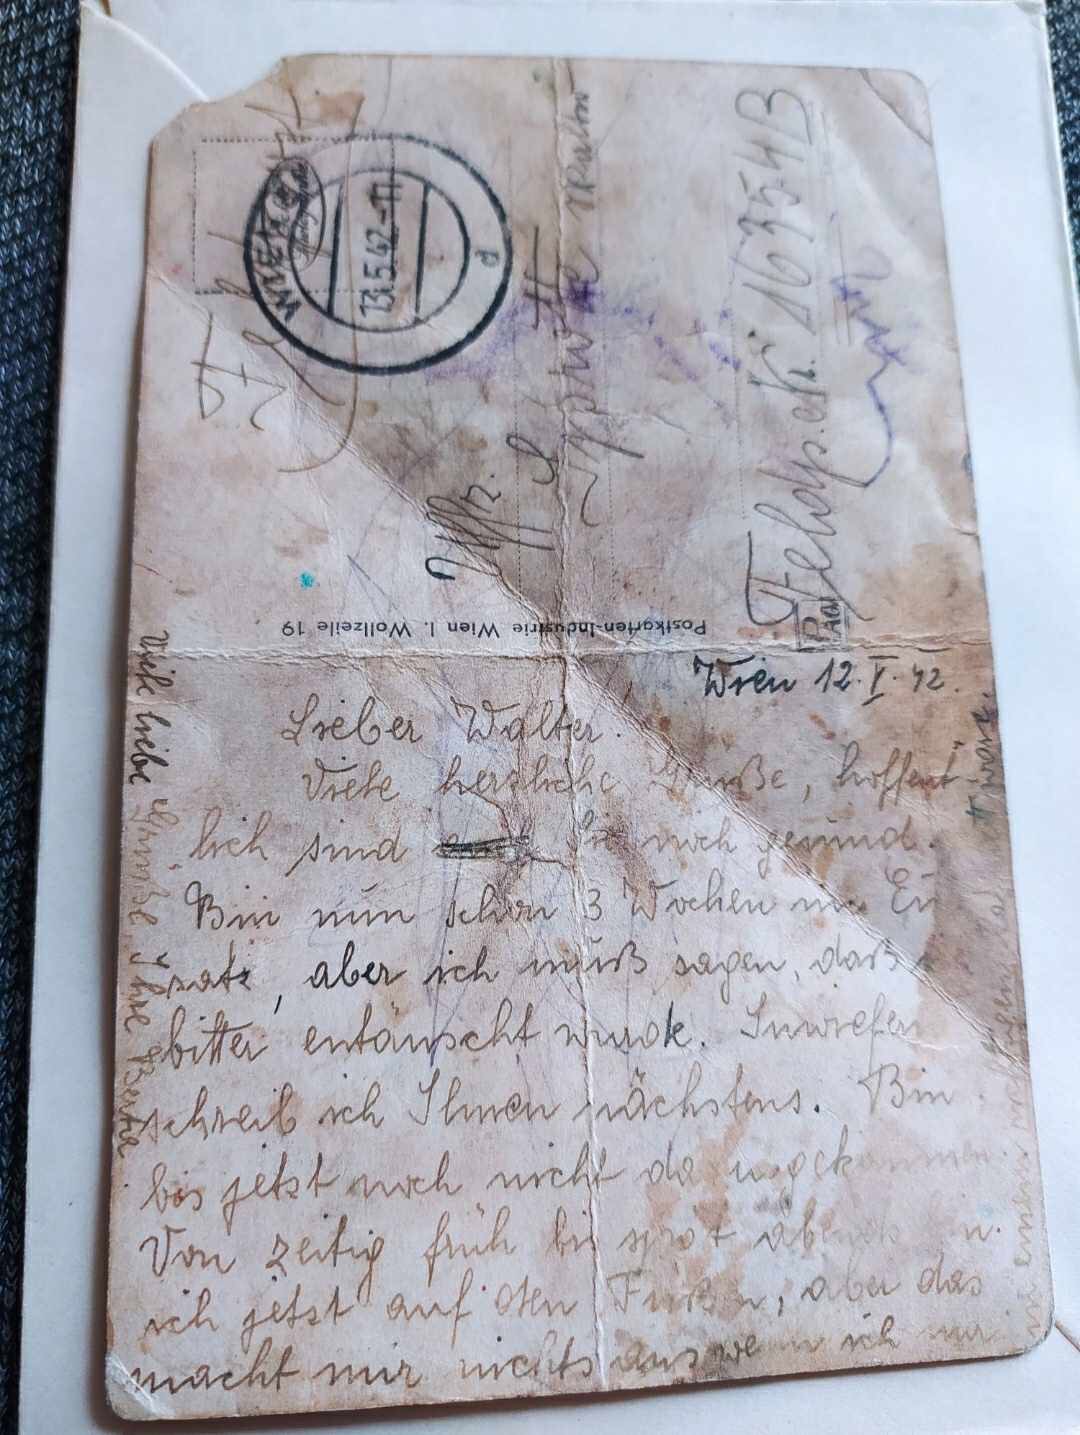 Feldpost
WIEN
13.5.42
d
Uffz.
Feldp. Nr. 16354 B
Postkarten-Industrie Wien I. Wollzeile 19
Wien 12. V. 42.
Lieber Walter!
Viele herzliche Grüße, hoffent
lich sind Sie noch gesund.
Bin nun schon 3 Wochen im Ein
satz, aber ich muß sagen, daß
bitter entäuscht wurde. Inwiefern
schreib ich Ihnen nächstens. Bin
bis jetzt noch nicht da zugekommen.
Von zeitig früh bis spät abends bin
ich jetzt auf den Füßen, aber das
macht mir nichts aus wenn ich nur
wär.
Viele liebe Grüße Ihre Berta